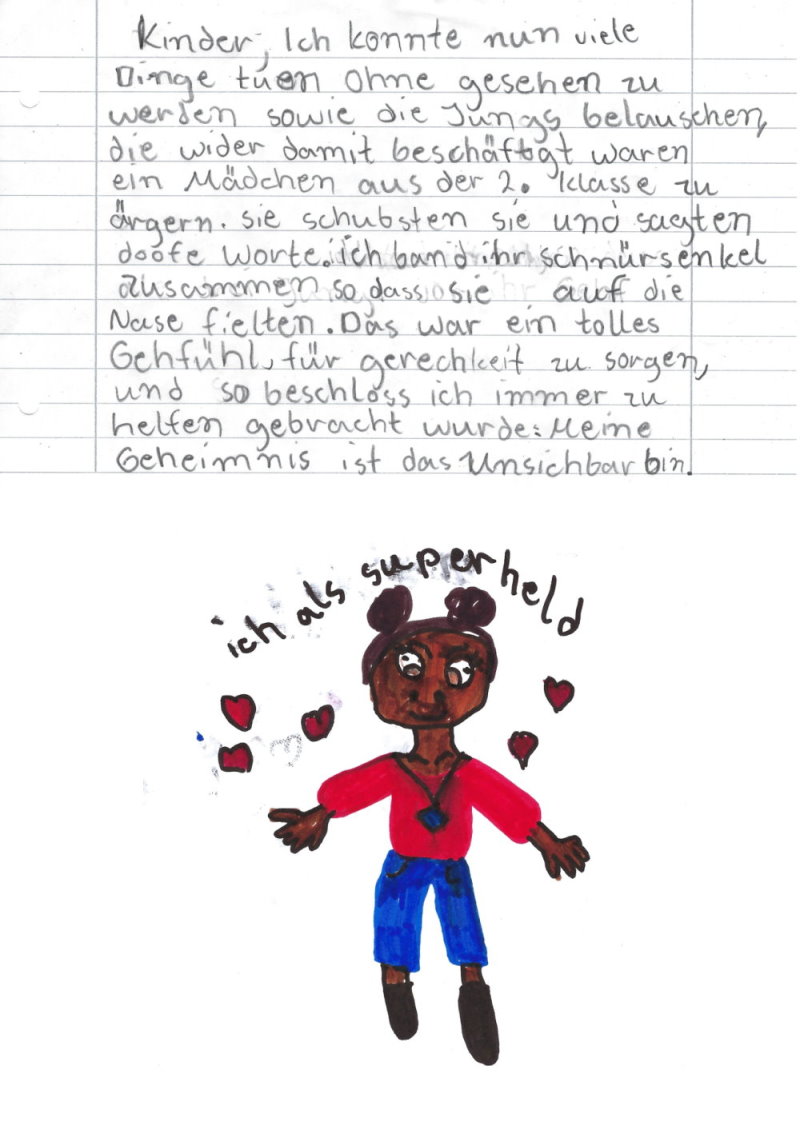 Kinder, Ich konnte nun viele
Dinge tuen ohne gesehen zu
werden sowie die Jungs belauschen,
die wider damit beschäftgt waren
ein Mädchen aus der 2. Klasse zu
ärgern. sie schubsten sie und sagten
doofe Worte. ich band ihr schnürsenkel
zusammen so dass sie auf die
Nase fielten. Das war ein tolles
Gehfühl, für gerechkeit zu sorgen,
und so beschloss ich immer zu
helfen gebracht wurde: Meine
Geheimnis ist das Unsichbar bin.
ich als superheld